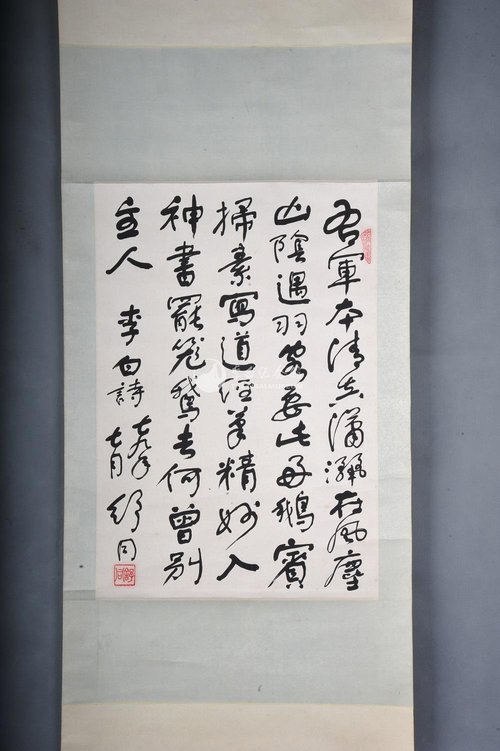 右軍本清真瀟灑在風塵
山陰遇羽客要此好鵝賓
掃素寫道經筆精妙入
神書罷籠鵞去何曾別
主人 李白詩
七九年
七月 舒同
舒同